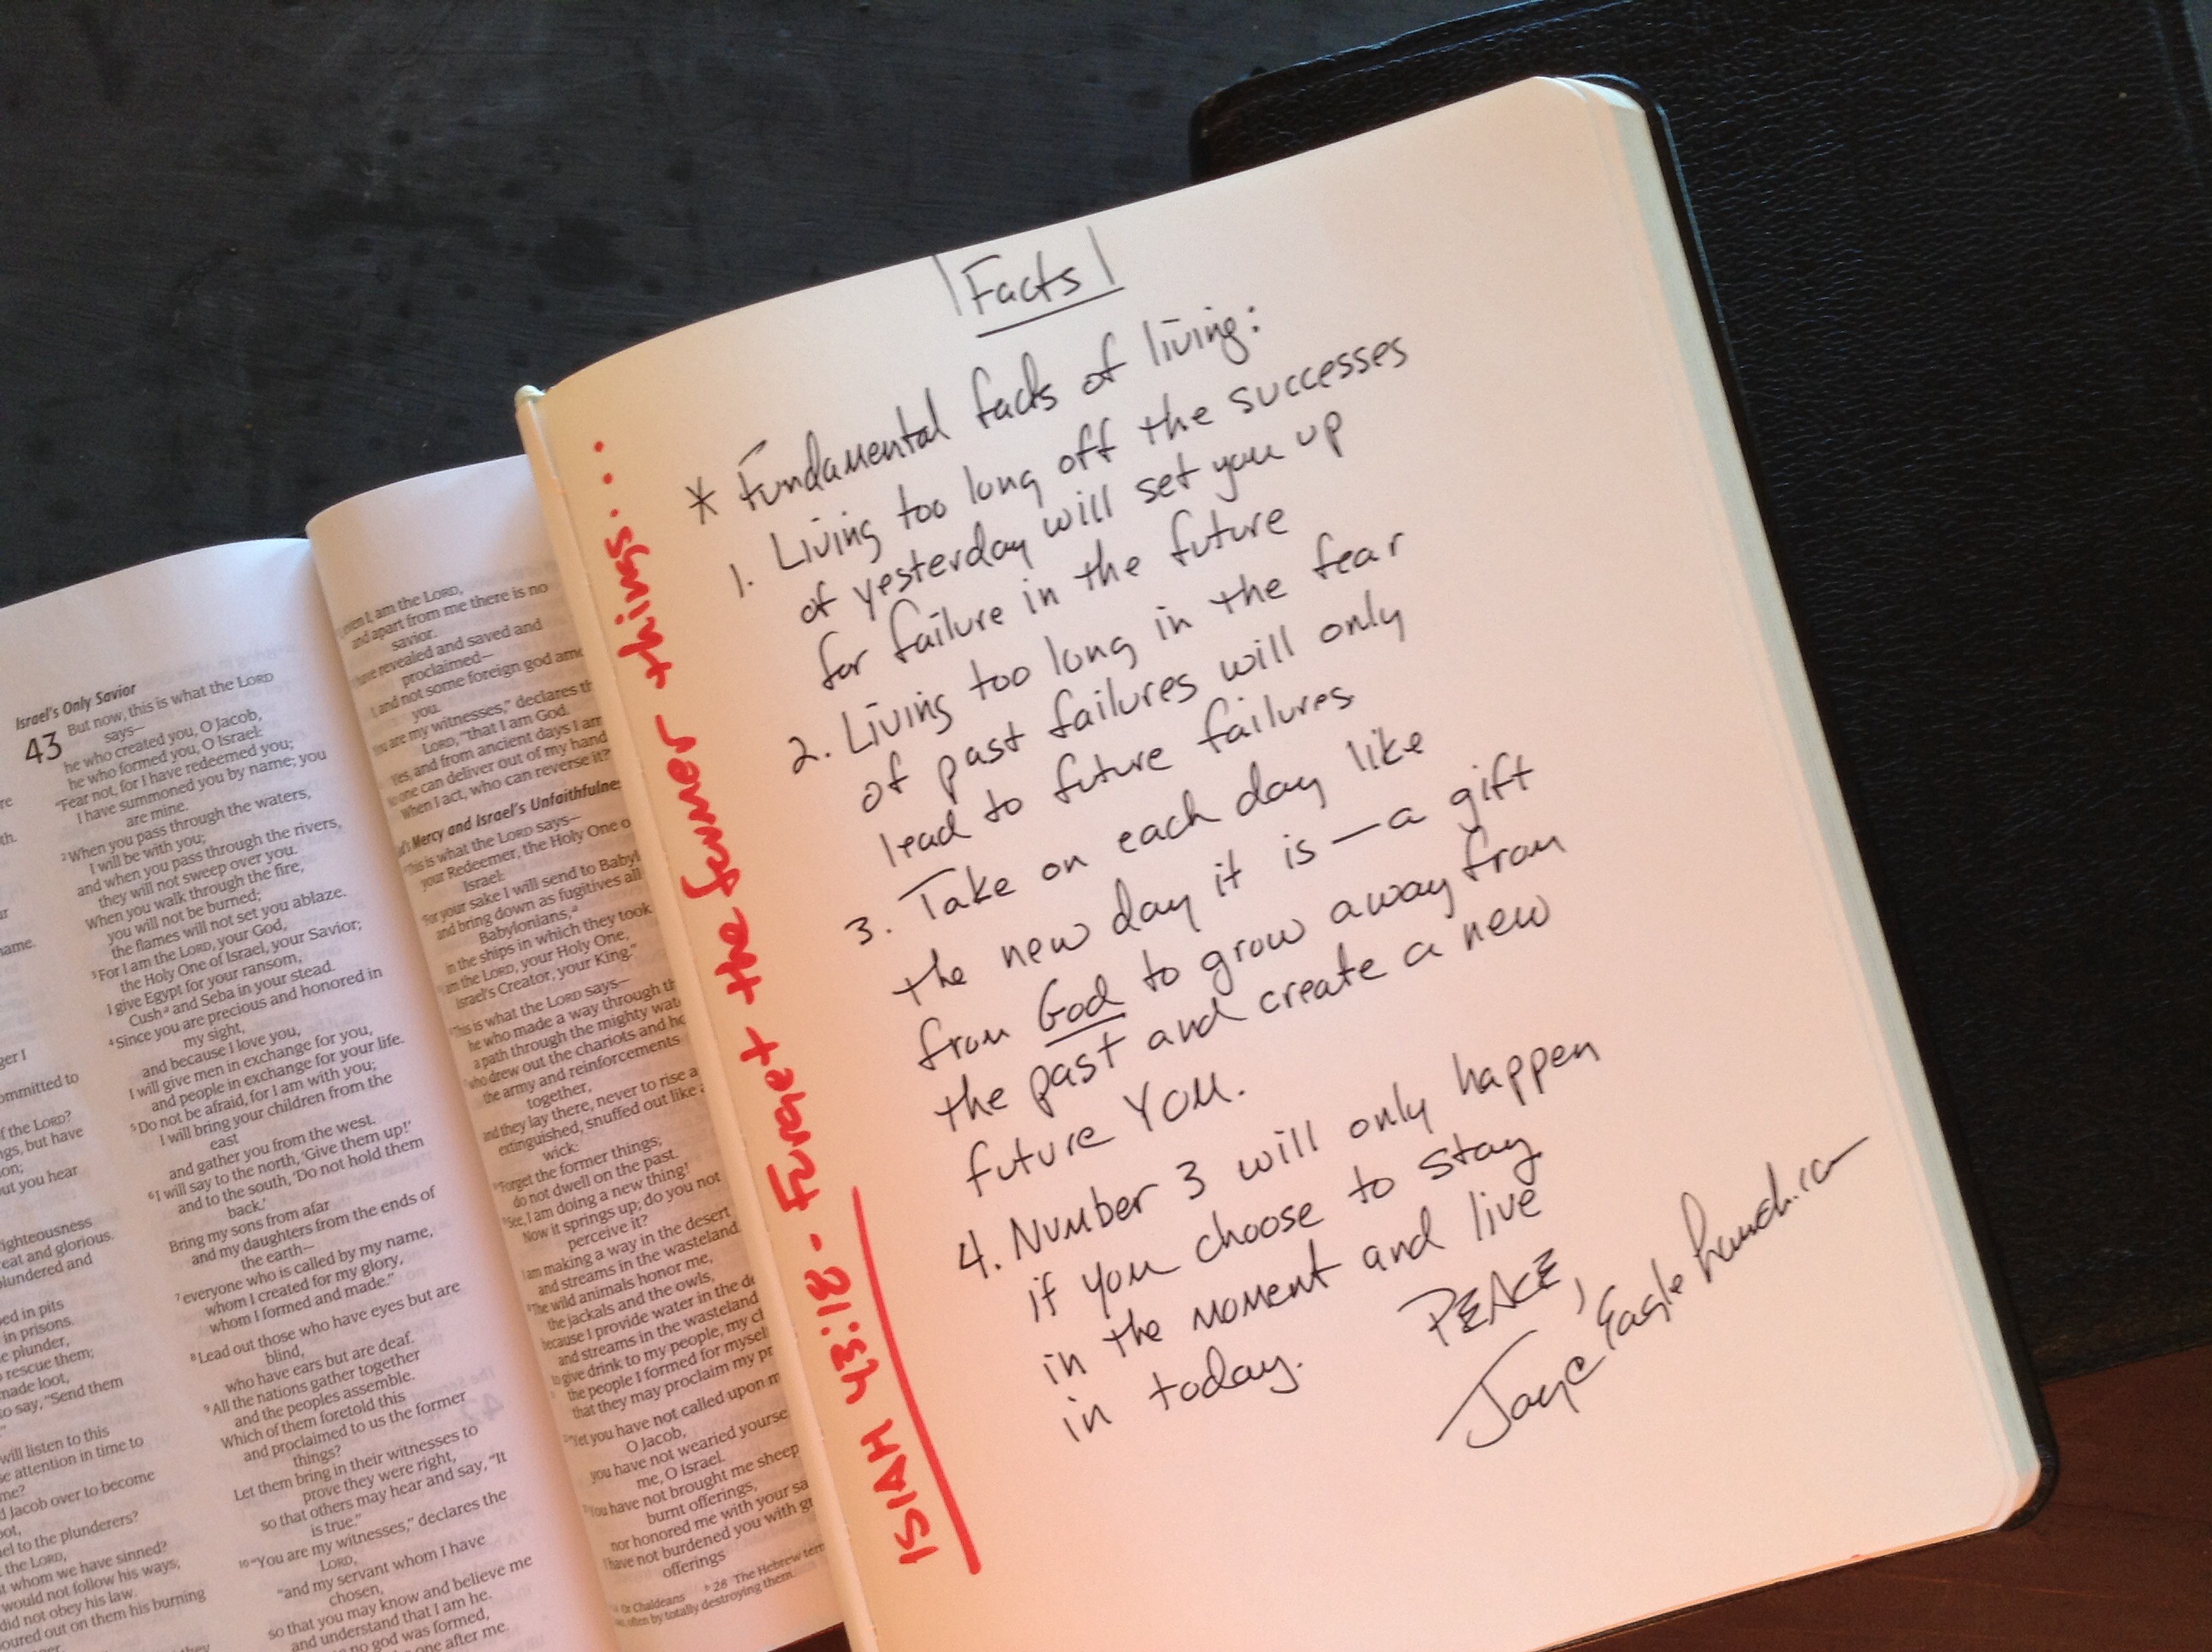 ger I
ommitted to
f the LORD?
ngs, but have
on;
ut you hear
righteousness
eat and glorious.
plundered and
ped in pits
in prisons.
e plunder,
o rescue them;
made loot,
to say, "Send them
will listen to this
se attention in time to
d Jacob over to become
oot,
el to the plunderers?
the LORD,
whom we have sinned?
would not follow his ways;
did not obey his law.
oured out on them his burning
Israel's Only Savior
43 But now, this is what the LORD
says—
he who created you, O Jacob,
he who formed you, O Israel:
"Fear not, for I have redeemed you;
I have summoned you by name; you
are mine.
2 When you pass through the waters,
I will be with you;
and when you pass through the rivers,
they will not sweep over you.
When you walk through the fire,
you will not be burned;
the flames will not set you ablaze.
3 For I am the LORD, your God,
the Holy One of Israel, your Savior;
I give Egypt for your ransom,
Cush a and Seba in your stead.
4 Since you are precious and honored in
my sight,
and because I love you,
I will give men in exchange for you,
and people in exchange for your life.
5 Do not be afraid, for I am with you;
I will bring your children from the
east
and gather you from the west.
6 I will say to the north, 'Give them up!'
and to the south, 'Do not hold them
back.'
Bring my sons from afar
and my daughters from the ends of
the earth—
7 everyone who is called by my name,
whom I created for my glory,
whom I formed and made."
8 Lead out those who have eyes but are
blind,
who have ears but are deaf.
9 All the nations gather together
and the peoples assemble.
Which of them foretold this
and proclaimed to us the former
things?
Let them bring in their witnesses to
prove they were right,
so that others may hear and say, "It
is true."
10 "You are my witnesses," declares the
LORD,
"and my servant whom I have
chosen,
so that you may know and believe me
and understand that I am he.
no god was formed,
one after me.
even I, am the LORD,
and apart from me there is no
savior.
have revealed and saved and
proclaimed—
I, and not some foreign god amo
you.
You are my witnesses," declares th
LORD, "that I am God.
Yes, and from ancient days I am
No one can deliver out of my hand
When I act, who can reverse it?"
Mercy and Israel's Unfaithfulnes
This is what the LORD says—
your Redeemer, the Holy One o
Israel:
"For your sake I will send to Babyl
and bring down as fugitives all
Babylonians, a
in the ships in which they took
I am the LORD, your Holy One,
Israel's Creator, your King."
This is what the LORD says—
he who made a way through th
a path through the mighty wat
who drew out the chariots and ho
the army and reinforcements
together,
and they lay there, never to rise a
extinguished, snuffed out like a
wick:
"Forget the former things;
do not dwell on the past.
See, I am doing a new thing!
Now it springs up; do you not
perceive it?
I am making a way in the desert
and streams in the wasteland.
The wild animals honor me,
the jackals and the owls,
because I provide water in the de
and streams in the wasteland
to give drink to my people, my ch
the people I formed for mysel
that they may proclaim my pr
"Yet you have not called upon m
O Jacob,
you have not wearied yourse
me, O Israel.
You have not brought me sheep
burnt offerings,
nor honored me with your sa
I have not burdened you with gr
offerings
Or Chaldeans b 28 The Hebrew term
often by totally destroying them.
ISIAH 43:18 - Forget the former things...
Facts
* Fundamental facts of living:
1. Living too long off the successes
of yesterday will set you up
for failure in the future
2. Living too long in the fear
of past failures will only
lead to future failures
3. Take on each day like
the new day it is — a gift
from God to grow away from
the past and create a new
future YOU.
4. Number 3 will only happen
if you choose to stay
in the moment and live
in today.
PEACE,